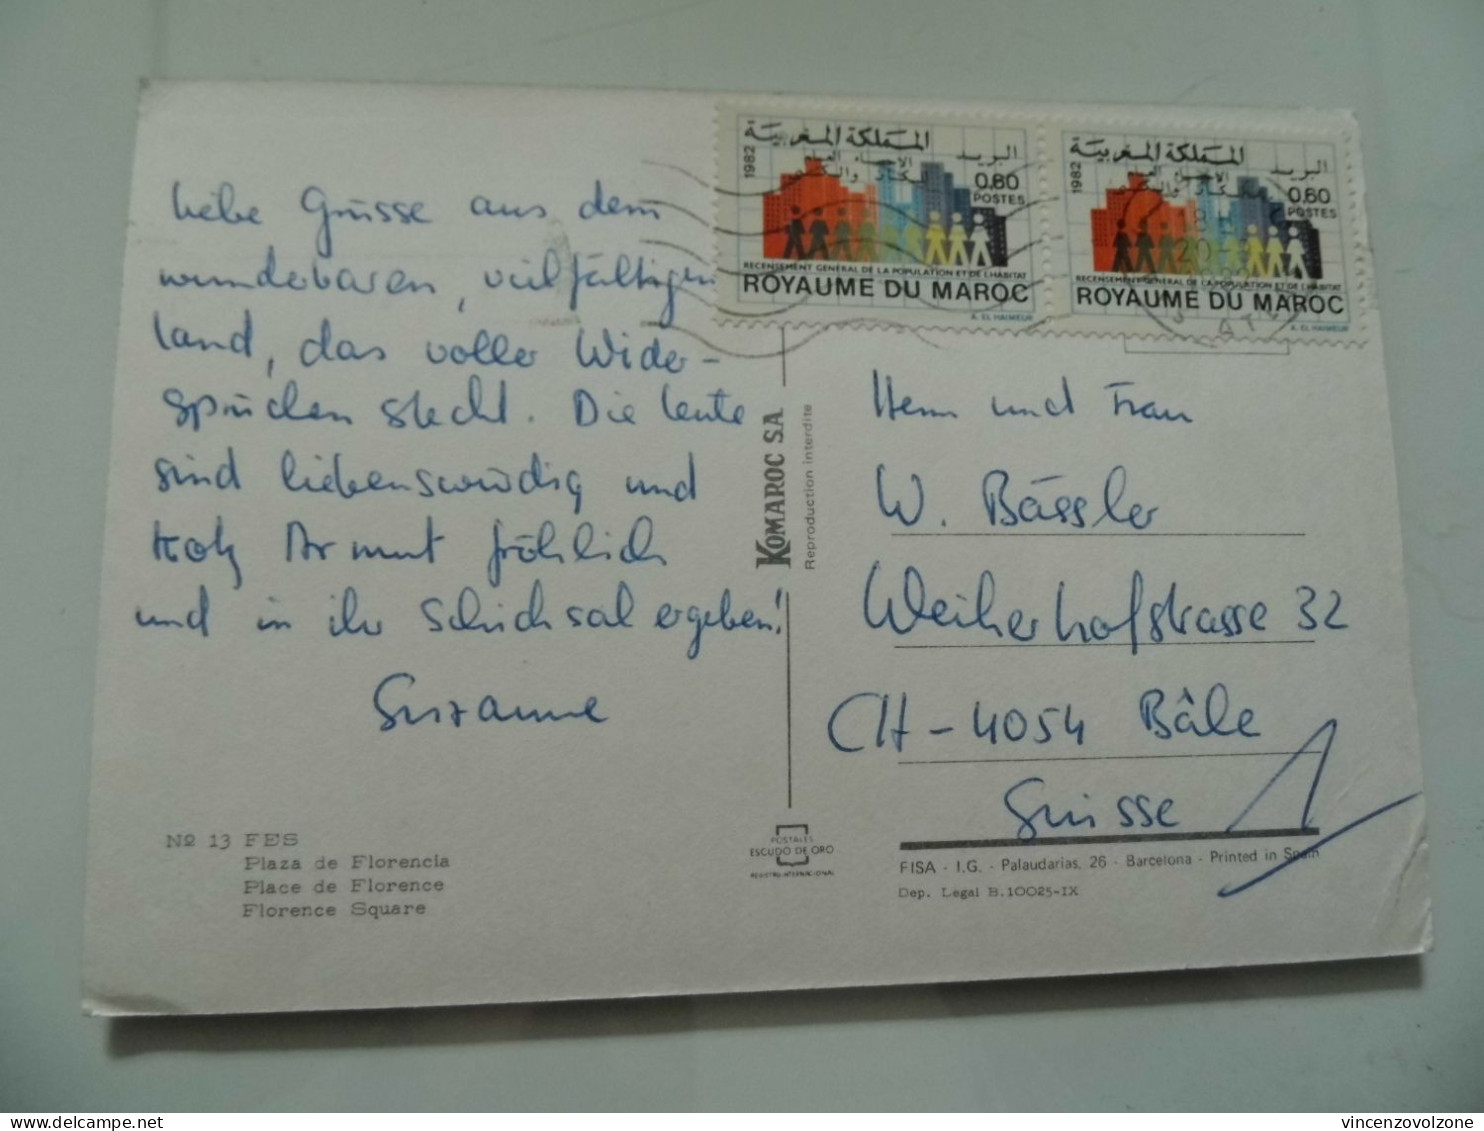 Liebe Grüsse aus dem
wunderbaren, vielfältigen
Land, das voller Wider-
sprüchen steckt. Die Leute
sind liebenswürdig und
trotz Armut fröhlich
und in ihr Schicksal ergeben!
Suzanne
Nº 13 FES
Plaza de Florencia
Place de Florence
Florence Square
KOMAROC S.A.
Reproduction interdite
POSTALES
ESCUDO DE ORO
REGISTRO INTERNACIONAL
1982
المملكة المغربية
البريد
الإحصاء العام
للسكان والسكنى
0,60
POSTES
RECENSEMENT GENERAL DE LA POPULATION ET DE L'HABITAT
ROYAUME DU MAROC
A. EL HAIMEUR
1982
المملكة المغربية
البريد
الإحصاء العام
للسكان والسكنى
0,60
POSTES
RECENSEMENT GENERAL DE LA POPULATION ET DE L'HABITAT
ROYAUME DU MAROC
A. EL HAIMEUR
Herrn und Frau
W. Bässler
Weiherhofstrasse 32
CH-4054 Bâle
Suisse
FISA - I.G. - Palaudarias, 26 - Barcelona - Printed in Spain
Dep. Legal B. 10025-IX
vincenzovolzone